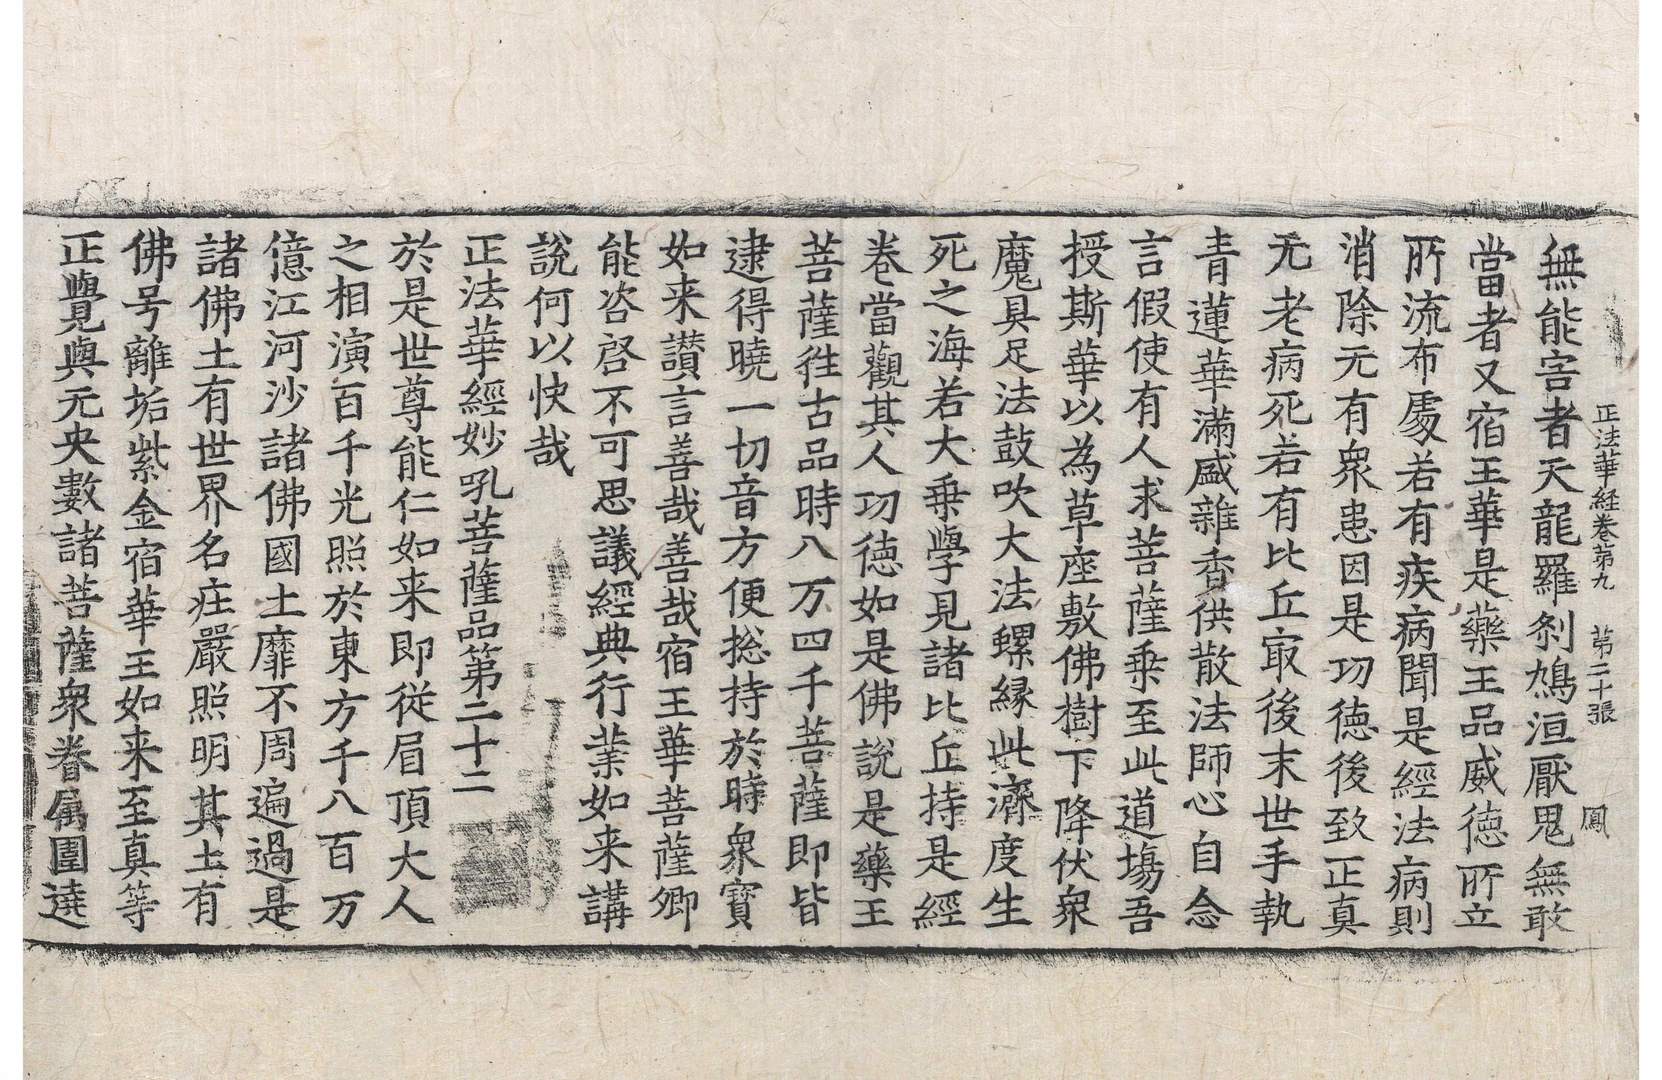 正法華経卷苐九 苐二十張 鳳
無能害者天龍羅刹鳩洹厭鬼無敢
當者又宿王華是藥王品威徳所立
所流布處若有疾病聞是經法病則
消除无有衆患因是功徳後致正真
无老病死若有比丘㝡後末世手執
青蓮華滿盛雜香供散法師心自念
言假使有人求菩薩乗至此道塲吾
授斯華以為草座敷佛樹下降伏衆
魔具足法鼓吹大法螺縁此濟度生
死之海若大乗學見諸比丘持是經
卷當觀其人功徳如是佛說是藥王
菩薩徃古品時八万四千菩薩即皆
逮得曉一切音方便捴持於時衆寶
如来讃言善哉善哉宿王華菩薩卿
能咨啓不可思議經典行業如来講
說何以快哉
正法華經妙吼菩薩品第二十二
於是世尊能仁如来即従眉頂大人
之相演百千光照於東方千八百万
億江河沙諸佛國土靡不周遍過是
諸佛土有世界名㽵嚴照明其土有
佛号離垢紫金宿華王如来至真等
正覺與无央數諸菩薩衆眷属圍遶